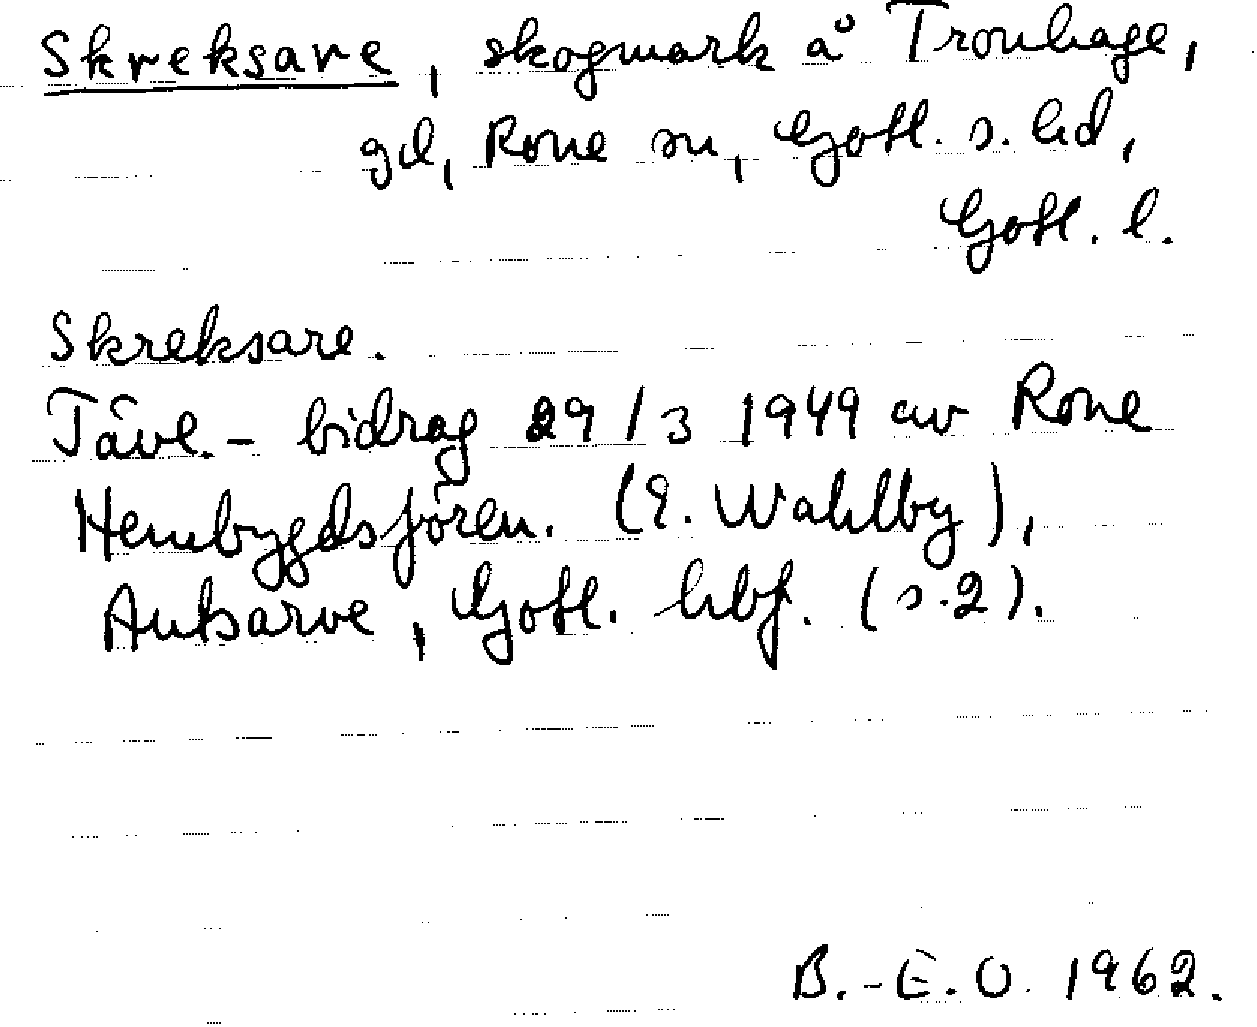 Skreksare, skogmark å Tronhage,
gd, Rone sn, Gotl. s. hd,
Gotl. l.
Skreksare.
Tävl.- bidrag 29/3 1949 av Rone
Hembygdsfören. (E. Wahlby),
Autsarve, Gotl. hbf. (s.2).
B.-E.O. 1962.